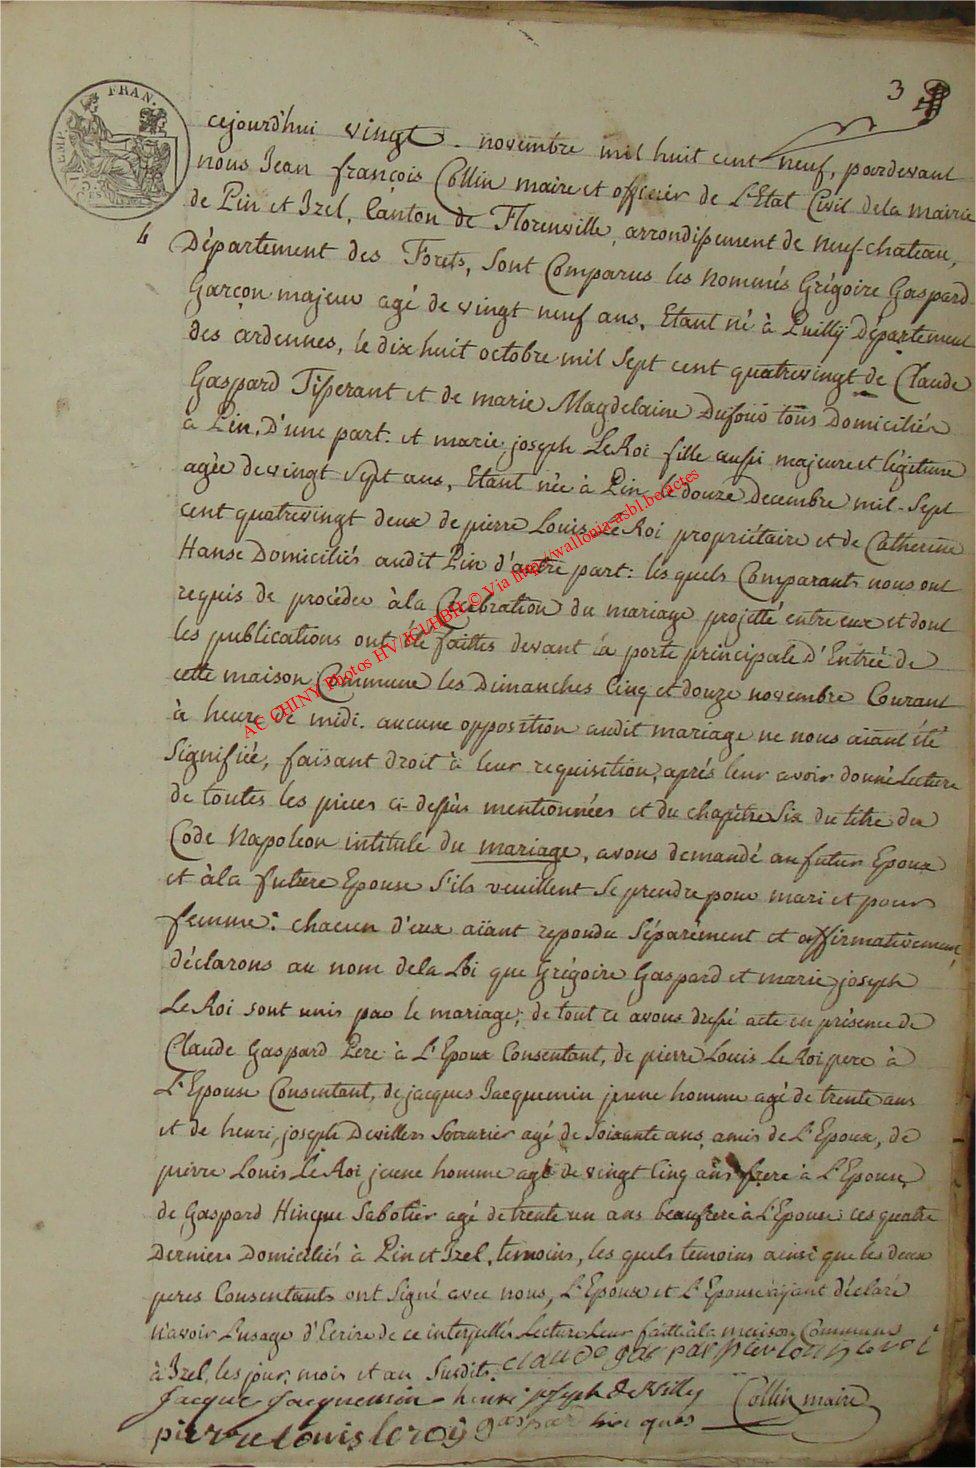 3
FRAN.
EMP.
4
cejourd'hui vingt novembre mil huit cent neuf, pardevant
nous Jean françois Collin maire et officier de L'Etat Civil dela mairie
de Pin et Izel, Canton de Florenville, arrondissement de neufchateau,
Département des Forets, sont Comparus les nommés Grégoire Gaspard
Garçon majeur agé de vingt neuf ans, Etant né à Puilly Département
des ardennes, le dix huit octobre mil sept cent quatrevingt de Claude
Gaspard Tisserant et de marie Magdelaine Dufour tous Domiciliés
à Pin, D'une part. et marie joseph Le Roi fille aussi majeure et légitime
agée de vingt sept ans, Etant née à Pin le douze decembre mil-sept
cent quatrevingt deux de pierre Louis Le Roi propriétaire et de Catherine
Hanse Domiciliés audit Pin d'autre part: lesquels Comparants nous ont
requis de procéder à la Célébration du mariage projetté entre eux et dont
les publications ont été faittes devant la porte principale D'Entrée de
cette maison Commune les Dimanches Cinq et douze novembre Courant
à heure de midi. aucune opposition audit mariage ne nous aiant été
Signifiée, faisant droit à leur requisition, aprés leur avoir donné Lecture
de toutes les pieces ci-dessus mentionnées et du chapitre Six du titre du
Code Napoleon intitulé du mariage, avons demandé au futur Epoux
et à la future Epouse S'ils veuillent Se prendre pour mari et pour
femme: chacun d'eux aïant repondu Séparément et affirmativement,
déclarons au nom dela Loi que Grégoire Gaspard et marie joseph
Le Roi sont unis par le mariage; de tout ce avons dressé acte en présence de
Claude Gaspard Pere à L'Epoux Consentant, de pierre Louis Le Roi pere à
L'Epouse Consentant, de jacques Jacquemin jeune homme agé de trente ans
et de henri joseph Devillers Serrurier agé de Soixante ans amis de L'Epoux, de
pierre Louis Le Roi jeune homme agé de vingt Cinq ans frere à L'Epouse,
de Gaspard Hinque Sabotier agé de trente un ans beaufrere à L'Epouse ces quatre
Derniers Domiciliés à Pin et Izel, temoins, les quels temoins ainsi que les deux
peres Consentants ont Signé avec nous, L'Epoux et L'Epouse aïant déclaré
n'avoir L'usage d'Ecrire de ce interpellés Lecture Leur faitte à la maison Commune
à Izel, les jour, mois et an Susdits. claude gaspar pier louis leroi
Jacque Jacquemin henri joseph devilly Collin maire
pierre louis leroy gaspar hinques
AC CHINY Photos HV/JCL/HBH © Via http://wallonia-asbl.be/actes